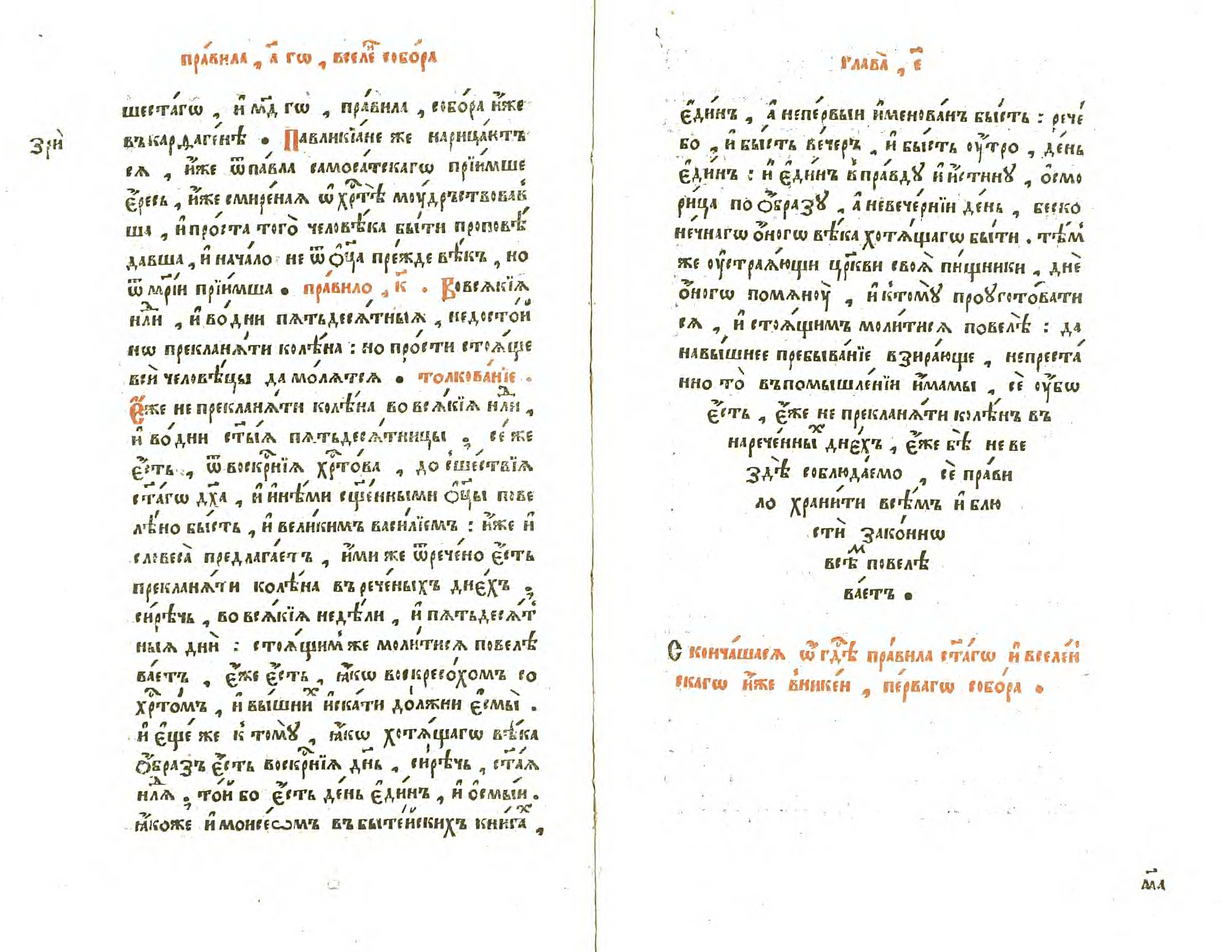 пра́вила , а҃ гѡ , вселе҆ собо́ра
шеста́гѡ , и҆ м҃д гѡ , пра́вила , собо́ра и҆́же
Зрѝ
въкарѳаге́нѣ . Павликїа́не же нарица́ютъ
ся , и҆́же ѿпа́вла самоса́тскагѡ прїи́мше
є҆́ресь , и҆́же смире́ная ѡ҆ хр҇тѣ̀ моу́дрьствовав
ша , и҆ про́ста того̀ человѣ́ка бы́ти проповѣ́
давша , и҆ нача́ло не ѿ ѻ҆ц҃а̀ пре́жде вѣ́къ , но
ѿ мр҃і́и прїи́мша . пра́вило , к҃ . Вовся́кїя
нл҇ди , и҆ во́ дни пятьдеся́тныя , недосто́й
нѡ прекланя́ти колѣ́на : но про́сти стоя́ще
всѝ человѣ́цы да мо́лятся . толкова́нїе .
Є҆́же не прекланя́ти колѣ́на во вся́кїя нл҇ди ,
и҆ во́ дни ст҃ы́я пятьдеся́тницы , се́ же
є҆́сть , ѿ воскр҇нїя хр҇то́ва , до сше́ствїя
ст҃а́гѡ дх҃а , и҆ и҆нѣ́ми сщ҃е́нными ѻ҆ц҃ы̀ пове
лѣ́но бы́сть , и҆ вели́кимъ васи́лїемъ : и҆́же и҆
словеса̀ предлага́етъ , и҆́ми же ѿрече́но є҆́сть
прекланя́ти колѣ́на въ рече́ныхъ дне́хъ ,
си́рѣчь , во вся́кїя недѣ́ли , и҆ пятьдеся́т
ныя днѝ : стоя́щим же моли́тися повелѣ
ва́етъ , є҆́же є҆́сть , ꙗ҆́кѡ воскресо́хомъ со
хр҇то́мъ , и҆ вы́шних и҆ска́ти до́лжни є҆смы̀ .
и҆ є҆ще́ же к томꙋ̀ , ꙗ҆́кѡ хотя́щагѡ вѣ́ка
ѻ҆́бразъ є҆́сть воскр҇нїя дн҃ь , си́рѣчь , ст҃а́я
нл҇дя . то́й бо є҆́сть де́нь є҆ди́нъ , и҆ ѻ҆смы́и .
ꙗ҆́коже и҆ моисе́ѡмъ въ быте́йскихъ кни́гах ,
глава̀ , є҃
є҆ди́нъ , а҆ непе́рвыи и҆менова́нъ бы́сть : рече́
бо , и҆ бы́сть ве́черъ , и҆ бы́сть оу҆́тро , де́нь
є҆ди́нъ : и҆ є҆ди́нъ впра́вдꙋ и҆ и҆́стинꙋ , ѻ҆смо
ри́ца по ѻ҆́бразꙋ , а҆ невече́рнїи де́нь , беско
не́чнагѡ ѻ҆́ногѡ вѣ́ка хотя́щагѡ бы́ти . тѣ́м
же оу҆страя́ющи цр҃кви своя̀ пи́щники , днѐ
ѻ҆́ногѡ помянꙋ̀ , и҆ ктомꙋ̀ проꙋгото́вати
ся , и҆ стоя́щимъ моли́тися повелѣ̀ : да
навы́шнее пребыва́нїе взира́юще , непреста́
нно то̀ въпомышле́нїи и҆́мамы , сѐ оу҆́бѡ
є҆́сть , є҆́же не прекланя́ти колѣ́нъ въ
нарече́нных дне́хъ , є҆́же бѣ̀ не ве
здѣ̀ соблюда́емо , сѐ пра́ви
ло храни́ти всѣ́мъ и҆ блю
стѝ зако́ннѡ
всѣ́м повелѣ
ва́етъ .
Сконча́шася ѡ҆ гд҇ѣ пра́вила ст҃а́гѡ и҆ вселе́н
скагѡ и҆́же вникеи , пе́рвагѡ собо́ра .
м҃а